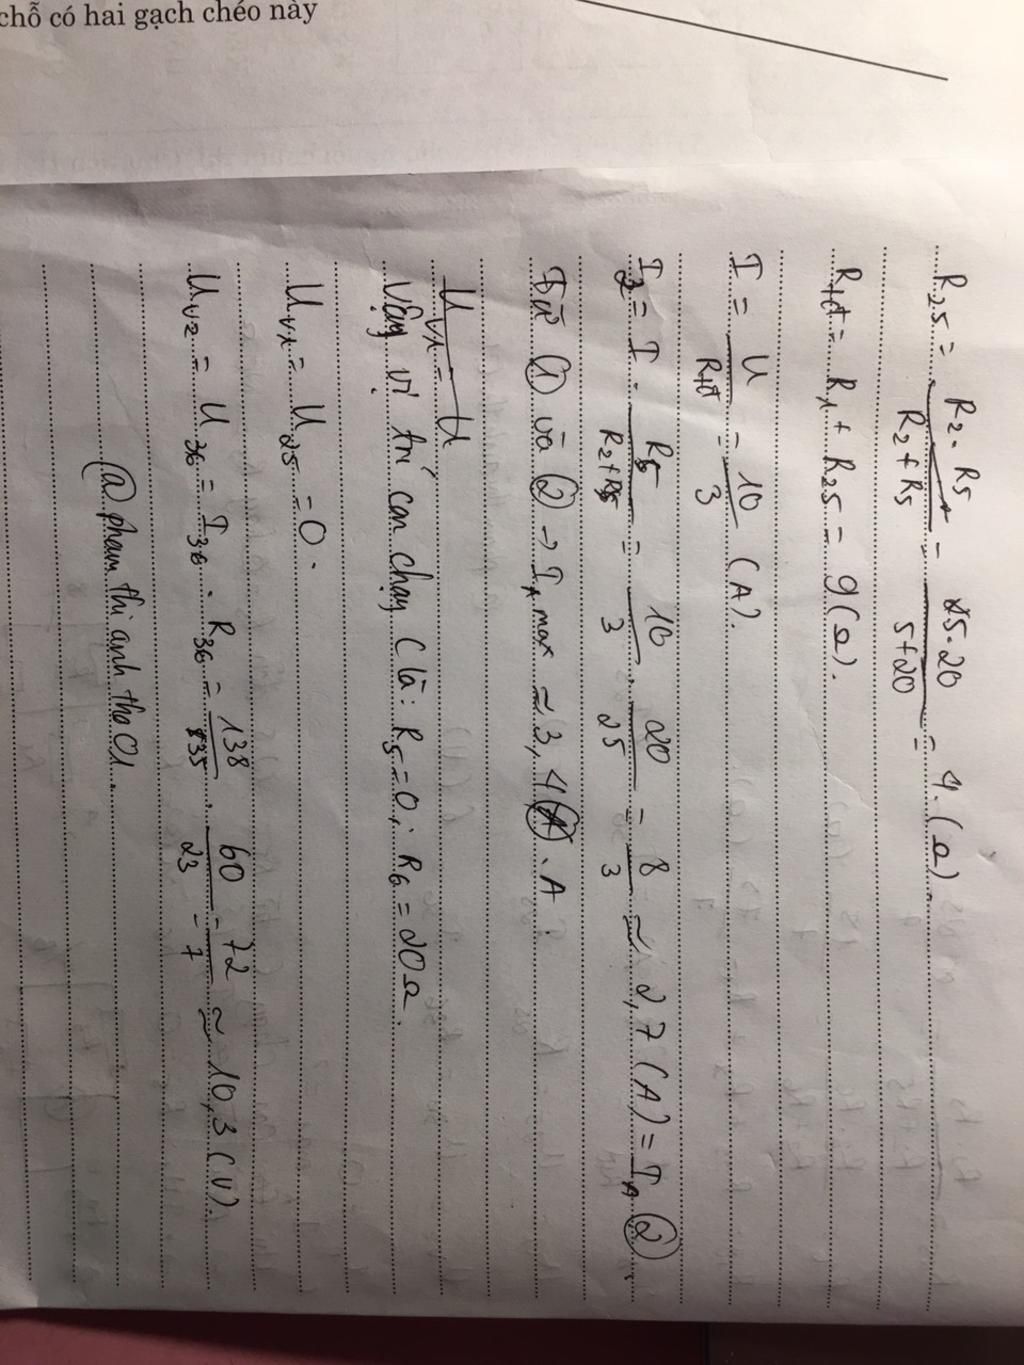 chỗ có hai gạch chéo này
R25 = R2.R5 / R2+R5 = 5.20 / 5+20 = 4.(Ω).
Rtđ = R1 + R25 = 9(Ω).
I = U / Rtđ = 10 / 3 (A).
I2 = I . R5 / R2+R5 = 10 / 3 . 20 / 25 = 8 / 3 ≈ 2,7 (A) = IA (2)
Từ (1) và (2) → IA max ≈ 3,4 . A
UV1 = U
Vậy vị trí con chạy C là: R5 = 0; R6 = 20Ω.
UV1 = U25 = 0.
UV2 = U36 = I36 . R36 = 138 / 35 . 60 / 23 = 72 / 7 ≈ 10,3 (V).
@ pham thi anh tho 01.